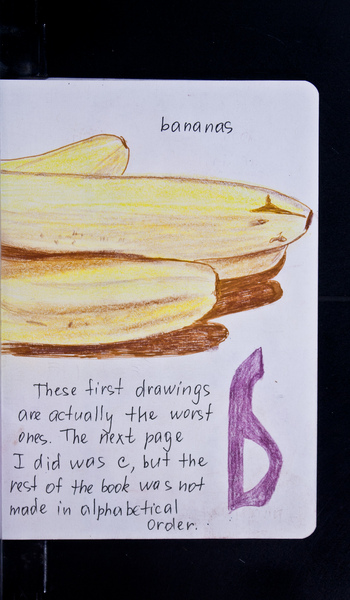 bananas
These first drawings
are actually the worst
ones. The next page
I did was c, but the
rest of the book was not
made in alphabetical
Order.
b